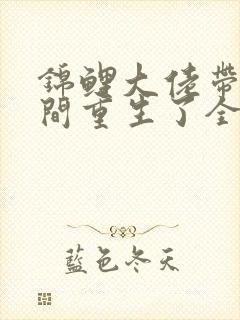 錦鯉大佬帶
間重生了全
藍色冬天